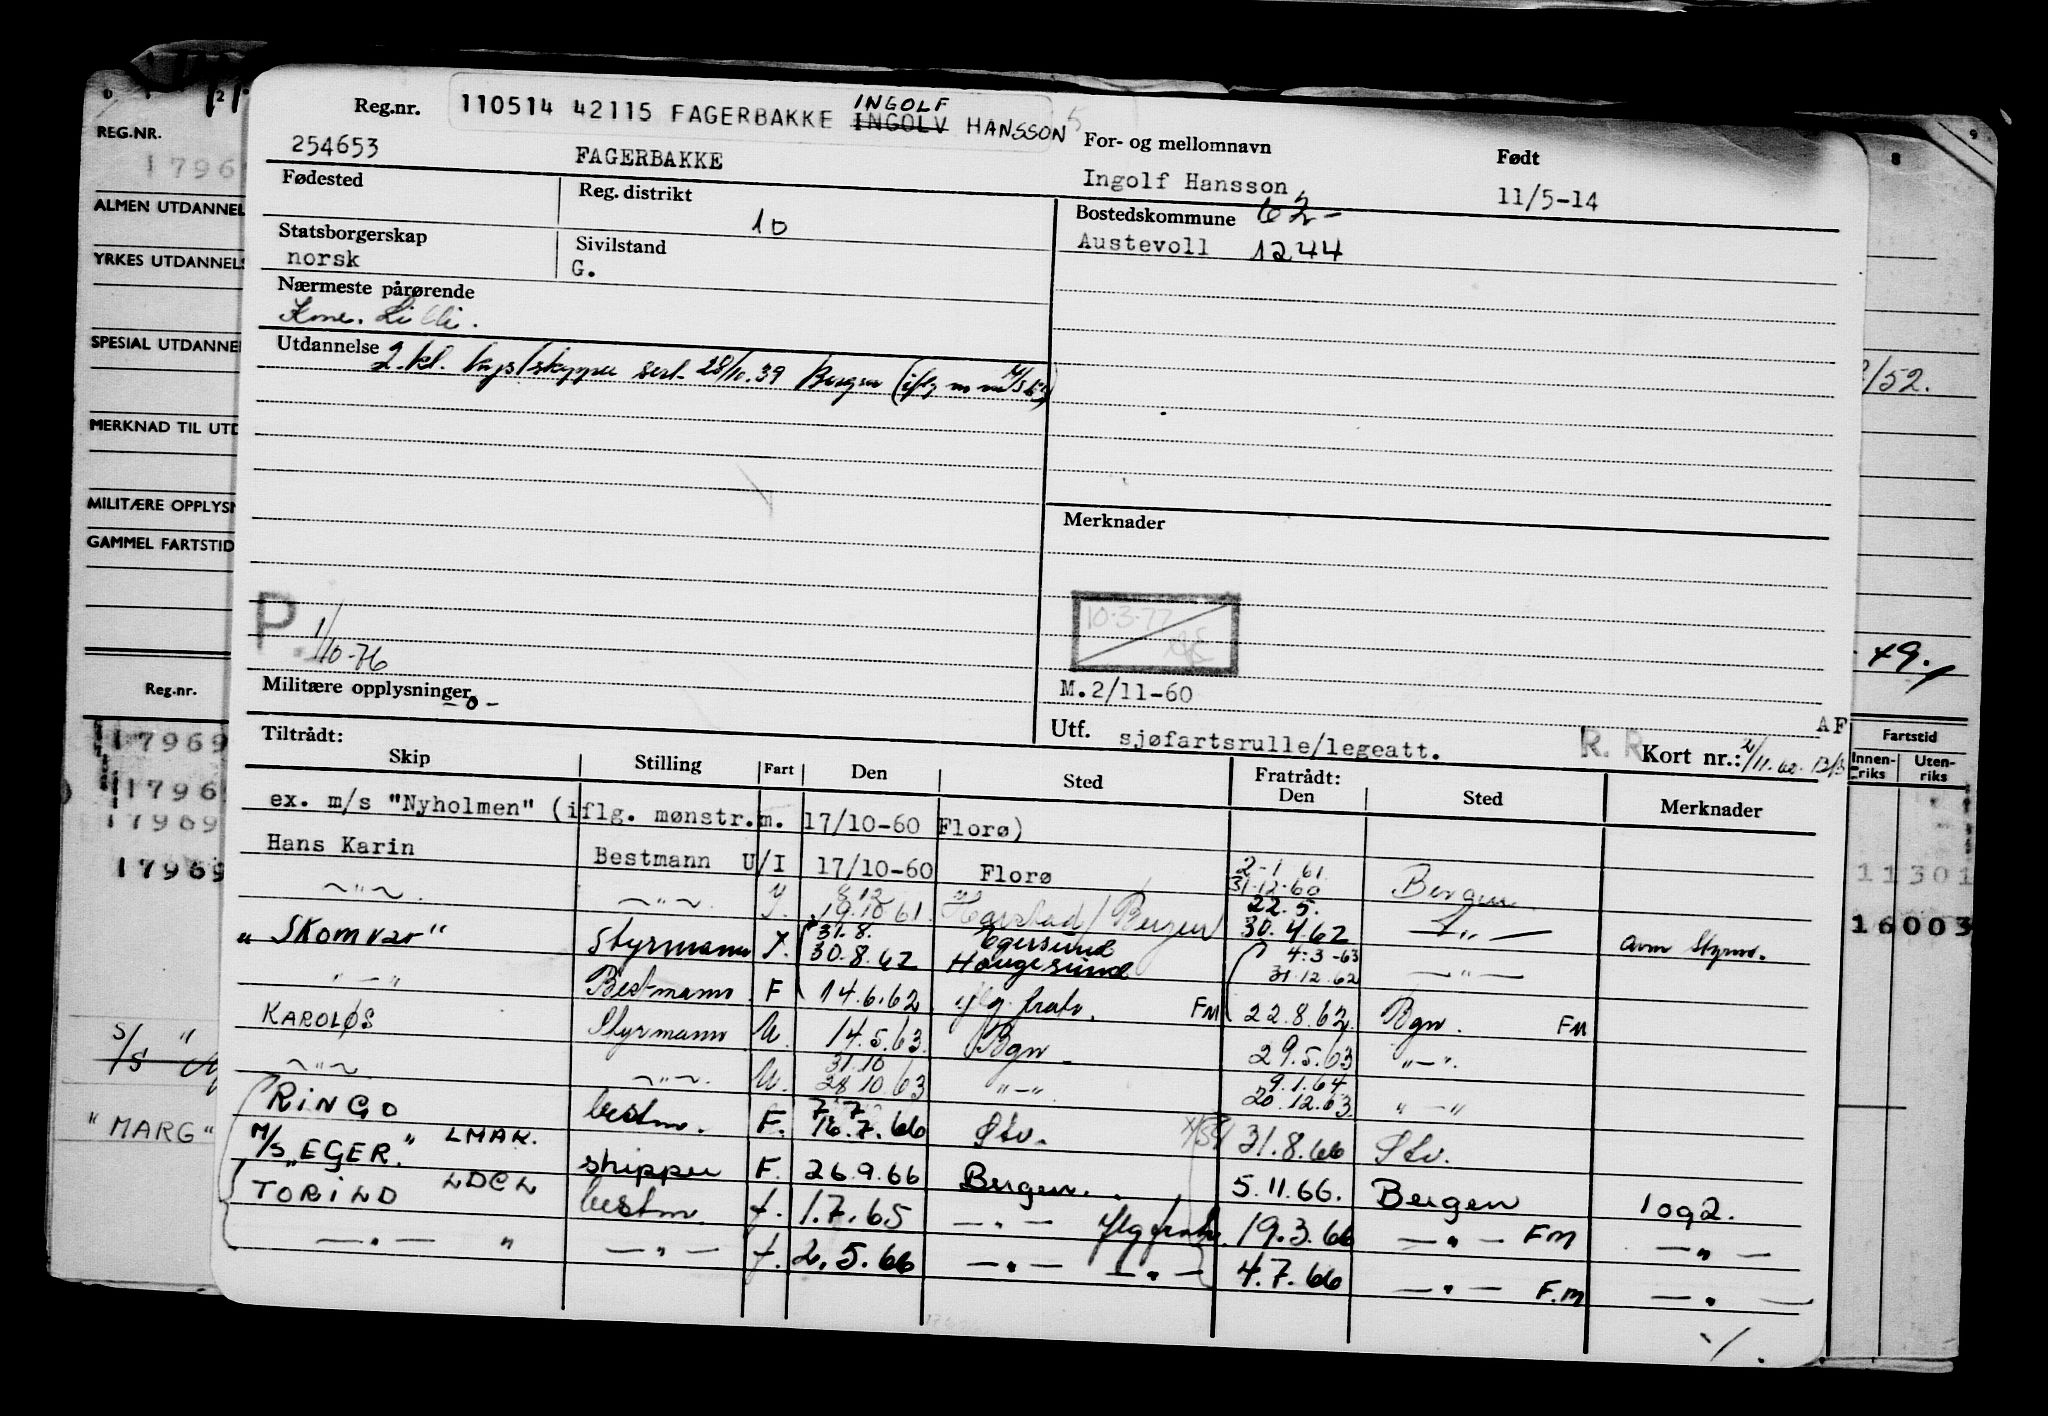 Reg.nr. 110514 42115 FAGERBAKKE INGOLF INGOLV HANSSON
254653 FAGERBAKKE
For- og mellomnavn
Ingolf Hansson
Født
11/5-14
Fødested
Reg. distrikt
10
Bostedskommune 62-
Austevoll 1244
Statsborgerskap
norsk
Sivilstand
G.
Nærmeste pårørende
Kone. Lilli.
Utdannelse 2.kl. kystskipper sert. 28/10.39 Bergen
P. 1/10-76
Militære opplysninger
-o-
Merknader
10.3.77
M.2/11-60
Utf. sjøfartsrulle/legeatt.
R. R
AF
Kort nr.: 2/11.60.
Tiltrådt:
Skip Stilling Fart Den Sted Fratrådt: Den Sted Merknader
ex. m/s "Nyholmen" (iflg. mønstr.m. 17/10-60 Florø)
Hans Karin Bestmann U/I 17/10-60 Florø 2-1 61. 31-12-60 Bergen.
〜"〜 〜"〜. 8.12 19.10 61. Harstad/Bergen 22.5. 30.4.62 —"—
"Skomvær" Styrmann F. 31.8. 30.8.62 Egersund Haugesund 4.3-63 31.12.62 —"— Styrm.
"—" Bestmann F 14.6.62 iflg. fratr. FM 22.8.62. Bgn. FM
KAROLØS Styrmann U. 14.5.63. Bgn. 29.5.63 "—".
〜"〜 〜"〜. U. 31.10 28 10.63 "—". 9.1.64 20.12.63. "—"
RINGO bestm. F. 7.7 16.7.66 Stv. 31.8.66 Stv.
M/S "EGER." LMAK. skipper F. 26.9.66 Bergen. 5.11.66. Bergen 1og2.
TORILD LDCL bestm. f. 1.7.65 —"— iflg fratr. 19.3.66 —"— FM —"—
—"— " —"— f. 2.5.66 —"— —"— 4.7.66 —"— F.M —"—
REG.NR.
1796
ALMEN UTDANNEL
YRKES UTDANNELS
SPESIAL UTDANNE
MERKNAD TIL UTD
MILITÆRE OPPLYSN
GAMMEL FARTSTID
Reg.nr.
17969
1796
17969
17969
S/ "
S/S
"MARG"
8
9
/52.
49.
Fartstid
Innen-riks Uten-riks
11301
16003